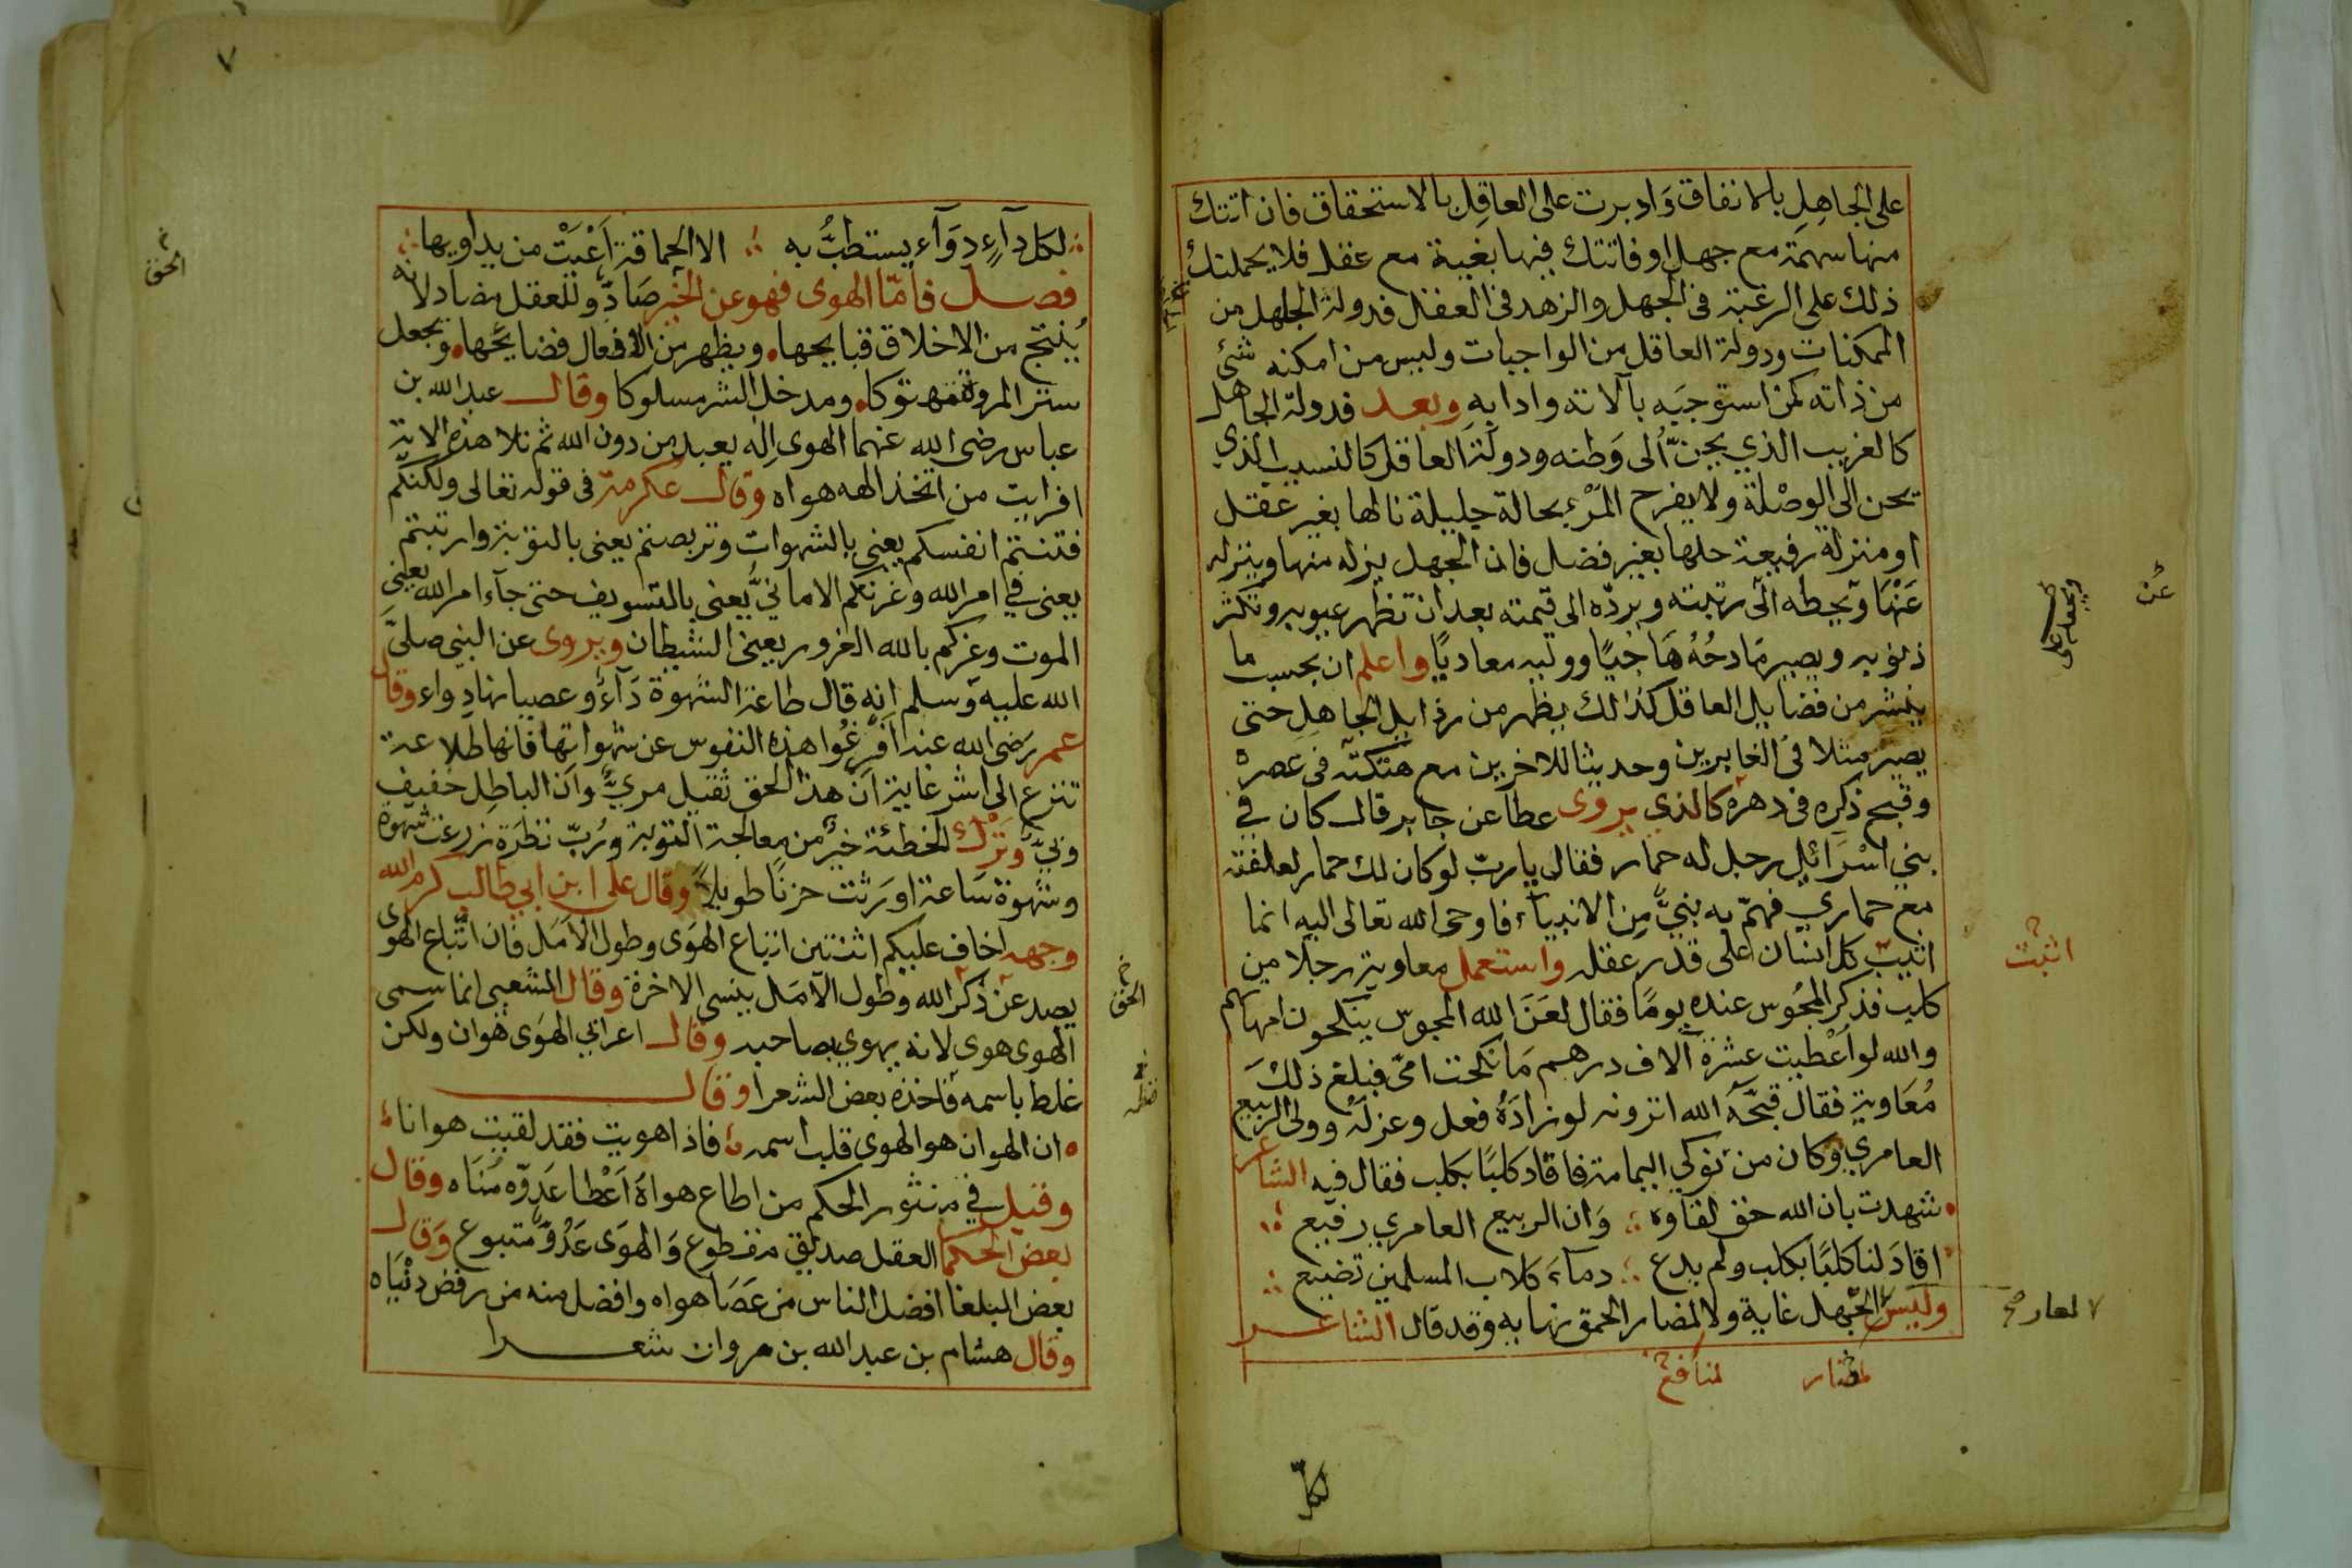 على الجاهِلِ بالاتفاق وَادبرت على العاقِلِ بالاستحقاق فان اتتك
منها سهمَة مع جهل او فاتتك فيها بغية مع عقل فلا يحملنك
ذلك على الرغبة فى الجهل والزهد فى العقل فدولة الجاهل من
الممكنات ودولة العاقل من الواجبات وليس من امكنه شئ
من ذاته كمن استوجَبَه بآلاته وادابه وبعد فدولة الجاهل
كالغريب الذي يحنّ الى وَطنه ودولَة العاقل كالنسيب الذي
يحن الى الوصْلَة ولا يفرح المَرْء بحالة جليلة نالها بغير عقل
او منزلة رفيعة حلها بغير فضل فان الجهل ينزله منها ويزله
عَنْهَا ويحطه الى رتبته ويردّه الى قيمته بعد ان تظهر عيوبه وتكثر
ذنوبه ويصير مَادحُهُ هَاجيًا ووليه معاديًا واعلم ان بحسب ما
ينشر من فضايل العاقل كذلك يظهر من رذايل الجاهلِ حتى
يصير مثلا فى الغابرين وحديثا للاخرين مع هتكته فى عصره
وقبح ذكره فى دهره كالذي يروى عطا عن جابر قال كان في
بني اسْرَائل رجل له حمار فقال يا ربّ لو كان لك حمار لعلفته
مع حماري فهمّ به نبيّ مِن الانبيآء فاوحى الله تعالى اليه انما
اثيب كل انسان على قدر عقله واستعمل معاوية رجلا من
كلب فذكر المجُوس عنده يومًا فقال لعَنَ الله المجوس ينكحون امهاتهم
والله لو اُعْطيت عشرة آلاف درهم مَا نكحت امّى فبلغ ذلكَ
مُعَاوية فقال قبحَّهُ الله اترونه لو زادَهُ فعل وعزلَهُ وولى الربيع
العامري وكان من نوكي اليمامة فاقاد كلبًا بكلب فقال فيه الشاعر
شهدت بان الله حق لقاوه ؞ وَان الربيع العامري رفيع ؞
اقادَ لنا كلبًا بكلب ولم يدع ؞ دمآءَ كلاب المسلمين تضيع ؞
وليس لجهل غاية ولا لمضار الحمق نهاية وقد قال الشاعر
عَنْ
اثبت
لعار صح
لمضار
لمنافع
لكل
٧
لكل دآءٍ دوَآء يستطبُّ به ؞ الا الحماقة اَعْيَتْ من يداويها ؞
فصل فأمّا الهوى فهو عن الخير صَادٌّ وللعقل مضاد لانه
يُنتج من الاخلاق قبايحها ويظهر من الافعال فضايحَها ويجعل
ستر المروة مهتوكا ومدخل الشر مسلوكا وقال عبد الله بن
عباس رضى الله عنهما الهوى اِله يعبد من دون الله ثم تلا هذه الاية
افرايت من اتخذ الهه هواه وقال عكرمة فى قوله تعالى ولكنكم
فتنتم انفسكم يعنى بالشهوات وتربصتم يعنى بالتوبة وارتبتم
يعنى في امر الله وغرتكم الامانيُّ يعنى بالتسويف حتى جآء امر الله يعنى
الموت وغركم بالله الغرور يعنى الشيطان ويروى عن النبي صلىَّ
الله عليه وسلم انه قال طاعة الشهوة دَآءٌ وعصيانها دواء وقال
عمر رَضى الله عنه اقرعُوا هذه النفوس عن شهواتها فانها طلاعة
تنزع الى اشر غاية ان هذا الحق ثقيل مريٌّ وان الباطِل خفيف
وبيّ وَتَرْكُ الخطئة خيرٌ من معالجة التوبة ورُبّ نظرَة زرعت شهوة
وشهوة سَاعة اورَثت حزنًا طويلاً وقال على ابن ابي طالب كرم الله
وجهه اخاف عليكم اثنتين اتباع الهَوَى وطول الاَمَل فان اتّباع الهوى
يصد عن ذكر الله وطول الاَمَل ينسى الاخرة وقال الشعبي انما سمى
الهوى هوى لانه يهوي بصاحبه وقال اعرابي الهَوَى هَوان ولكن
غلط باسمه فاخذه بعض الشعرا وقال
ان الهوان هو الهوى قلب اسمه ؞ فاذا هويت فقد لقيت هوانا
وقيل في منثور الحكم من اطاع هواهُ اَعْطا عَدوّه مُنَاه وقال
بعض الحكما العقل صديق مقطوع وَالهوَى عَدُوٌّ متبوع وَقال
بعض البلغا افضل الناس من عَصَا هواه وافضل منه من رفض دنْيَاه
وقال هشام بن عبد الله بن مروان شعرا
الحق
الحق